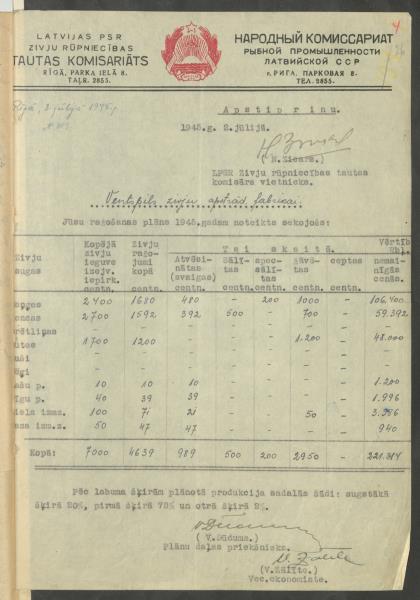 LATVIJAS PSR
ZIVJU RŪPNIECĪBAS
TAUTAS KOMISARIĀTS
RĪGĀ, PARKA IELĀ 8.
TĀLR. 2855.
НАРОДНЫЙ КОМИССАРИАТ
РЫБНОЙ ПРОМЫШЛЕННОСТИ
ЛАТВИЙСКОЙ ССР
г. РИГА, ПАРКОВАЯ 8.
ТЕЛ. 2855.
Rīgā, 2. jūlijā 1945. g.
Apstiprinu.
1945.g. 2.jūlijā.
(N.Zicars.)
LPSR Zivju rūpniecības tautas
komisāra vietnieks.
Ventspils zivju apstrād. fabrikai.
Jūsu ražošanas plāns 1945.gadam noteikts sekojošs:
Zivju sugas
Kopējā zivju ieguve izejv. iepirk. centn.
Zivju ražojumi kopā centn.
Tai skaitā.
Atvēsinātas (svaigas) centn.
Sālītas centn.
specsālītas centn.
žāvētas centn.
ceptas centn.
Vērtība Rbļ. nemainīgās cenās.
2400 1680 480 - 200 1000 - 106.400
2.700 1592 392 500 - 700 - 59.392
1700 1200 - - - 1.200 - 48.000
10 10 10 - - - - 1.200
40 39 39 - - - - 1.996
100 71 21 - - 50 -
50 47 47 - - - - 940
Kopā: 7000 4639 989 500 200 2950 - 221.314
Pēc labuma šķirām plānotā produkcija sadalās šādi: augstākā
šķirā 20%, pirmā šķirā 78% un otrā šķirā 2%.
(V.Dūduma.)
Plānu daļas priekšnieks.
(V.Zālīte.)
Vec.ekonomiste.